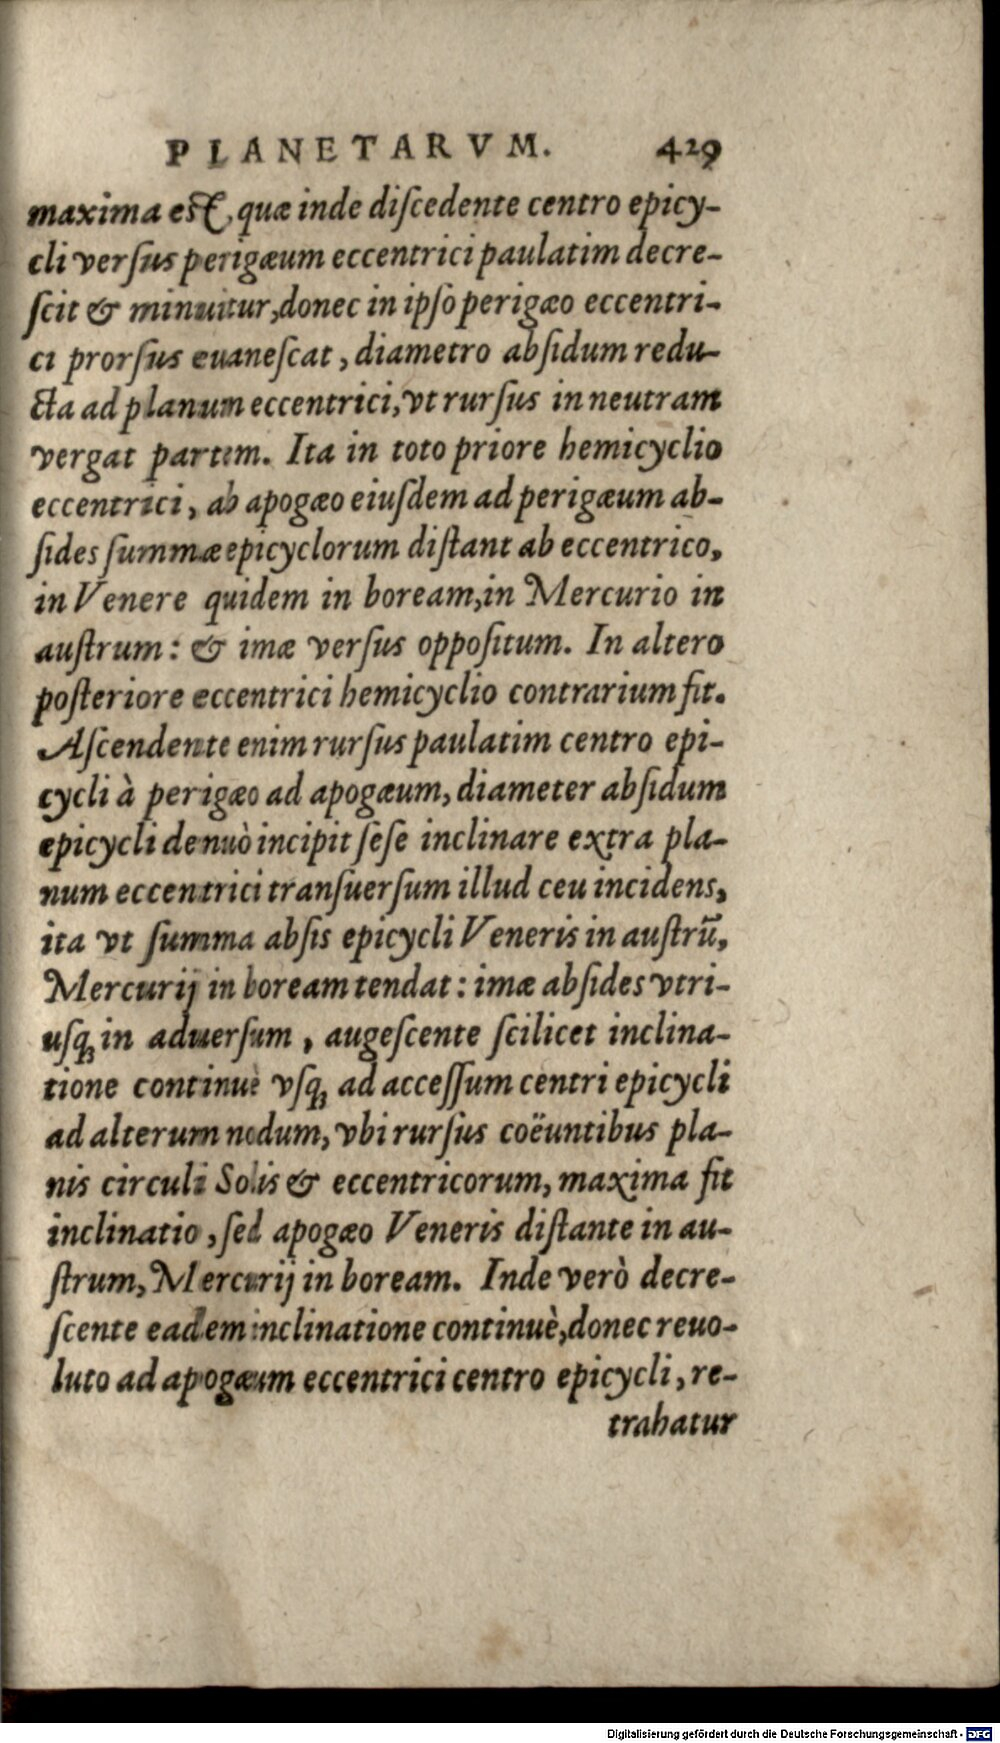 PLANETARVM. 429
maxima est, quæ inde diſcedente centro epicy-
cli verſus perigæum eccentrici paulatim decre-
ſcit & minuitur, donec in ipſo perigæo eccentri-
ci prorſus euaneſcat, diametro abſidum redu-
cta ad planum eccentrici, vt rurſus in neutram
vergat partem. Ita in toto priore hemicyclio
eccentrici, ab apogæo eiuſdem ad perigæum ab-
ſides ſummæ epicyclorum diſtant ab eccentrico,
in Venere quidem in boream, in Mercurio in
auſtrum: & imæ verſus oppoſitum. In altero
poſteriore eccentrici hemicyclio contrarium fit.
Aſcendente enim rurſus paulatim centro epi-
cycli à perigæo ad apogæum, diameter abſidum
epicycli denuò incipit ſeſe inclinare extra pla-
num eccentrici tranſuerſum illud ceu incidens,
ita vt ſumma abſis epicycli Veneris in auſtrū,
Mercurij in boream tendat: imæ abſides vtri-
uſq; in aduerſum, augeſcente ſcilicet inclina-
tione continuè vſq; ad acceſſum centri epicycli
ad alterum nodum, vbi rurſus coëuntibus pla-
nis circuli Solis & eccentricorum, maxima fit
inclinatio, ſed apogæo Veneris diſtante in au-
ſtrum, Mercurij in boream. Inde verò decre-
ſcente eadem inclinatione continuè, donec reuo-
luto ad apogæum eccentrici centro epicycli, re-
trahatur
Digitalisierung gefördert durch die Deutsche Forschungsgemeinschaft - DFG